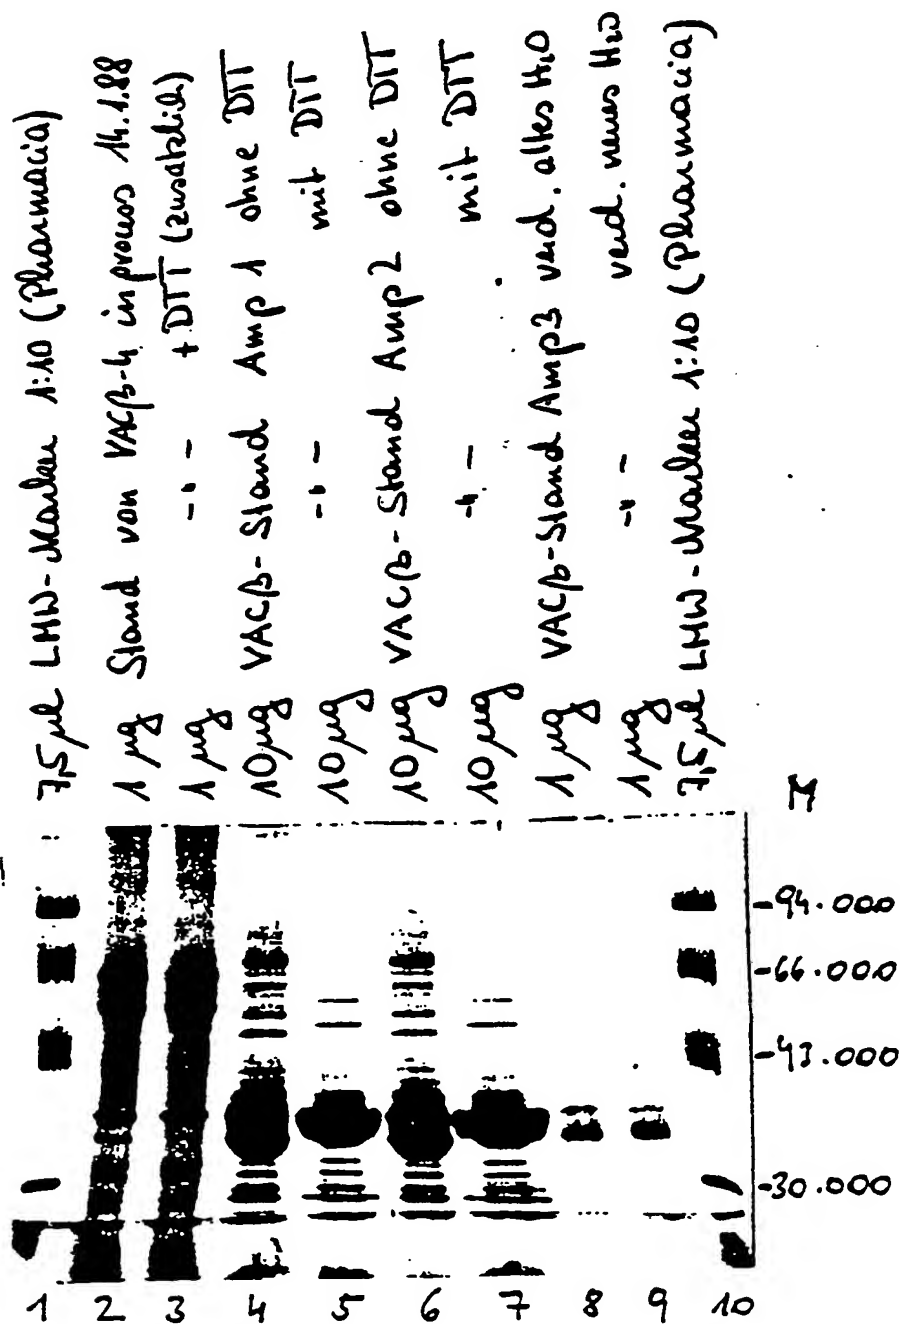 7,5 µl LMW-Marker 1:10 (Pharmacia)
1 µg Stand von VACβ-4 inprocess 14.1.88
1 µg -"- + DTT (zusätzlich)
10 µg VACβ-Stand Amp 1 ohne DTT
10 µg -"- mit DTT
10 µg VACβ-Stand Amp 2 ohne DTT
10 µg -"- mit DTT
1 µg VACβ-Stand Amp3 verd. altes H₂O
1 µg -"- verd. neues H₂O
7,5 µl LMW-Marker 1:10 (Pharmacia)
M
-94.000
-66.000
-43.000
-30.000
1 2 3 4 5 6 7 8 9 10